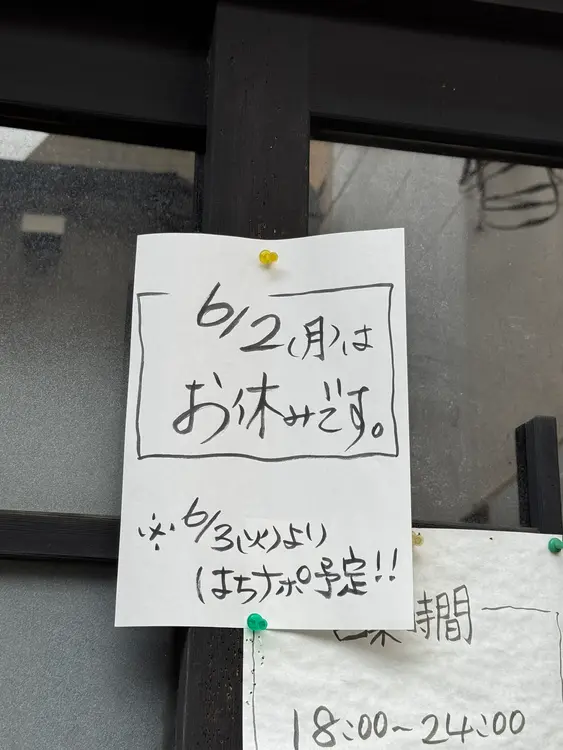 6/2(月)は
お休みです。
※6/3(火)より
はちナポ予定!!
時間
18:00~24:00